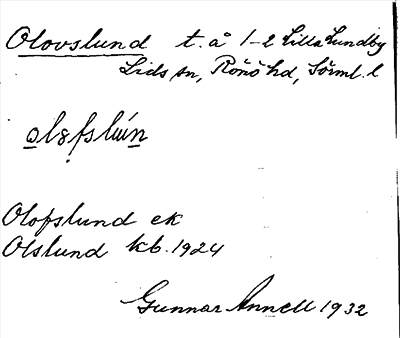 Olovslund t. å 1-2 Lilla Lundby
Lids sn, Rönö hd, Sörml. l
Olofslund ek
Olslund kb. 1924
Gunnar Annell 1932